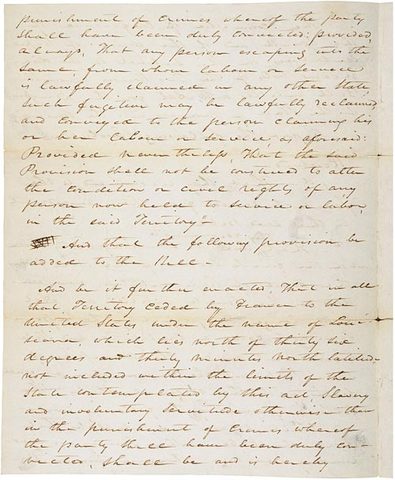 punishment of crimes whereof the party
shall have been duly convicted: provided,
always, That any person escaping into the
same, from whom labour or service
is lawfully claimed in any other State,
such fugitive may be lawfully reclaimed
and conveyed to the person claiming his
or her labour or service, as aforesaid:
Provided nevertheless, That the said
Provision shall not be construed to alter
the condition or civil rights of any
person now held to service or labor,
in the said Territory
And that the following provision be
added to the Bill
And be it further enacted, That in all
that Territory ceded by France to the
United States, under the name of Loui-
siana, which lies north of thirty six
degrees and thirty minutes north latitude
not included within the limits of the
State contemplated by this act, Slavery
and involuntary servitude otherwise than
in the punishment of Crimes, whereof
the party shall have been duly con-
victed, shall be and is hereby